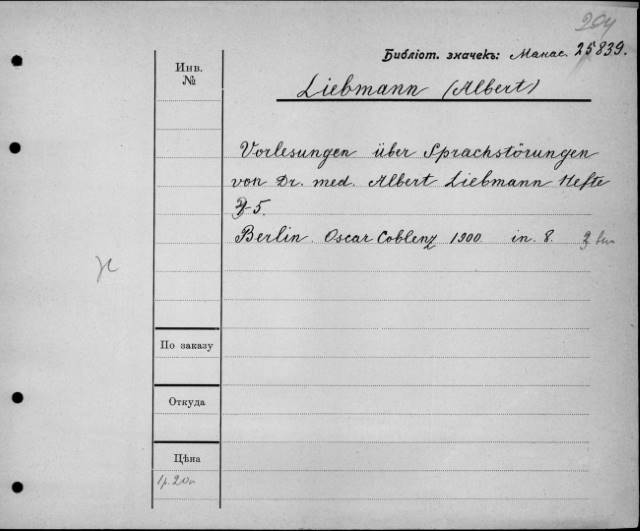 204
Библіот. значекъ: Манас. 25839.
Инв. №
Liebmann (Albert)
Vorlesungen über Sprachstörungen
von Dr. med. Albert Liebmann Hefte
-5.
Berlin. Oscar Coblenz 1900. in. 8.
По заказу
Откуда
Цѣна
1р. 20к